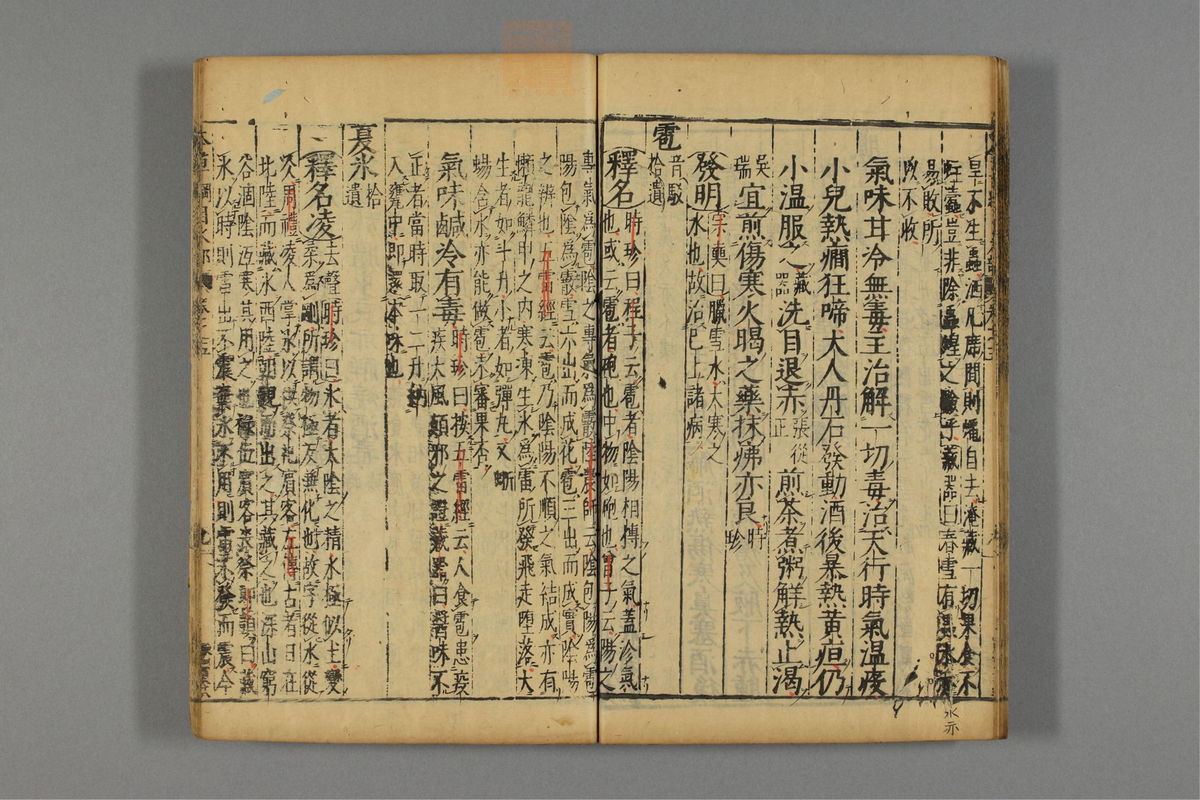 皇子生蟲洒几席間則蠅自去淹藏一切果食不
蛀蠹豈非除蟲蝗之驗乎藏器曰春雪有蟲水亦
易敗所
以不收
氣味甘冷無毒主治解一切毒治天行時氣溫疫
小兒熱癎狂啼大人丹石發動酒後暴熱黄疸仍
小温服之藏器洗目退赤張從正煎茶煮粥解熱止渴
吳瑞宜煎傷寒火暍之藥抹疿亦良時珍
發明宗奭曰臘雪水大寒之
水也故治已上諸病
雹音駁拾遺
釋名時珍曰程子云雹者陰陽相傳之氣蓋沴氣
也或云雹者砲也中物如砲也曾子云陽之
專氣爲雹陰之專氣爲霰陸農師云陰包陽爲雹
陽包陰爲霰雪六出而成花雹三出而成實陰陽
之辨也五雷經云雹乃陰陽不順之氣結成亦有
懶龍鱗甲之内寒凍生氷爲雷所發飛走墮落大
生者如斗升小者如彈丸又蜥
蜴含水亦能做雹未審果否
氣味鹹冷有毒時珍曰按五雷經云人食雹患疫
疾大風顛邪之證藏器曰醬味不
正者當時取一二升納
入甕中即還本味也
夏氷拾遺
釋名凌去聲時珍曰氷者太陰之精水極似土變
柔爲剛所謂物極反兼化也故字從水從
仌周禮凌人掌氷以供祭祀賓客左傳古者日在
北陸而藏氷西陸朝覿而出之其藏之也深山窮
谷涸陰沍寒其用之也祿位賓客喪祭郎顗曰藏
氷以時則雷出不震棄氷不用則雷不發而震今